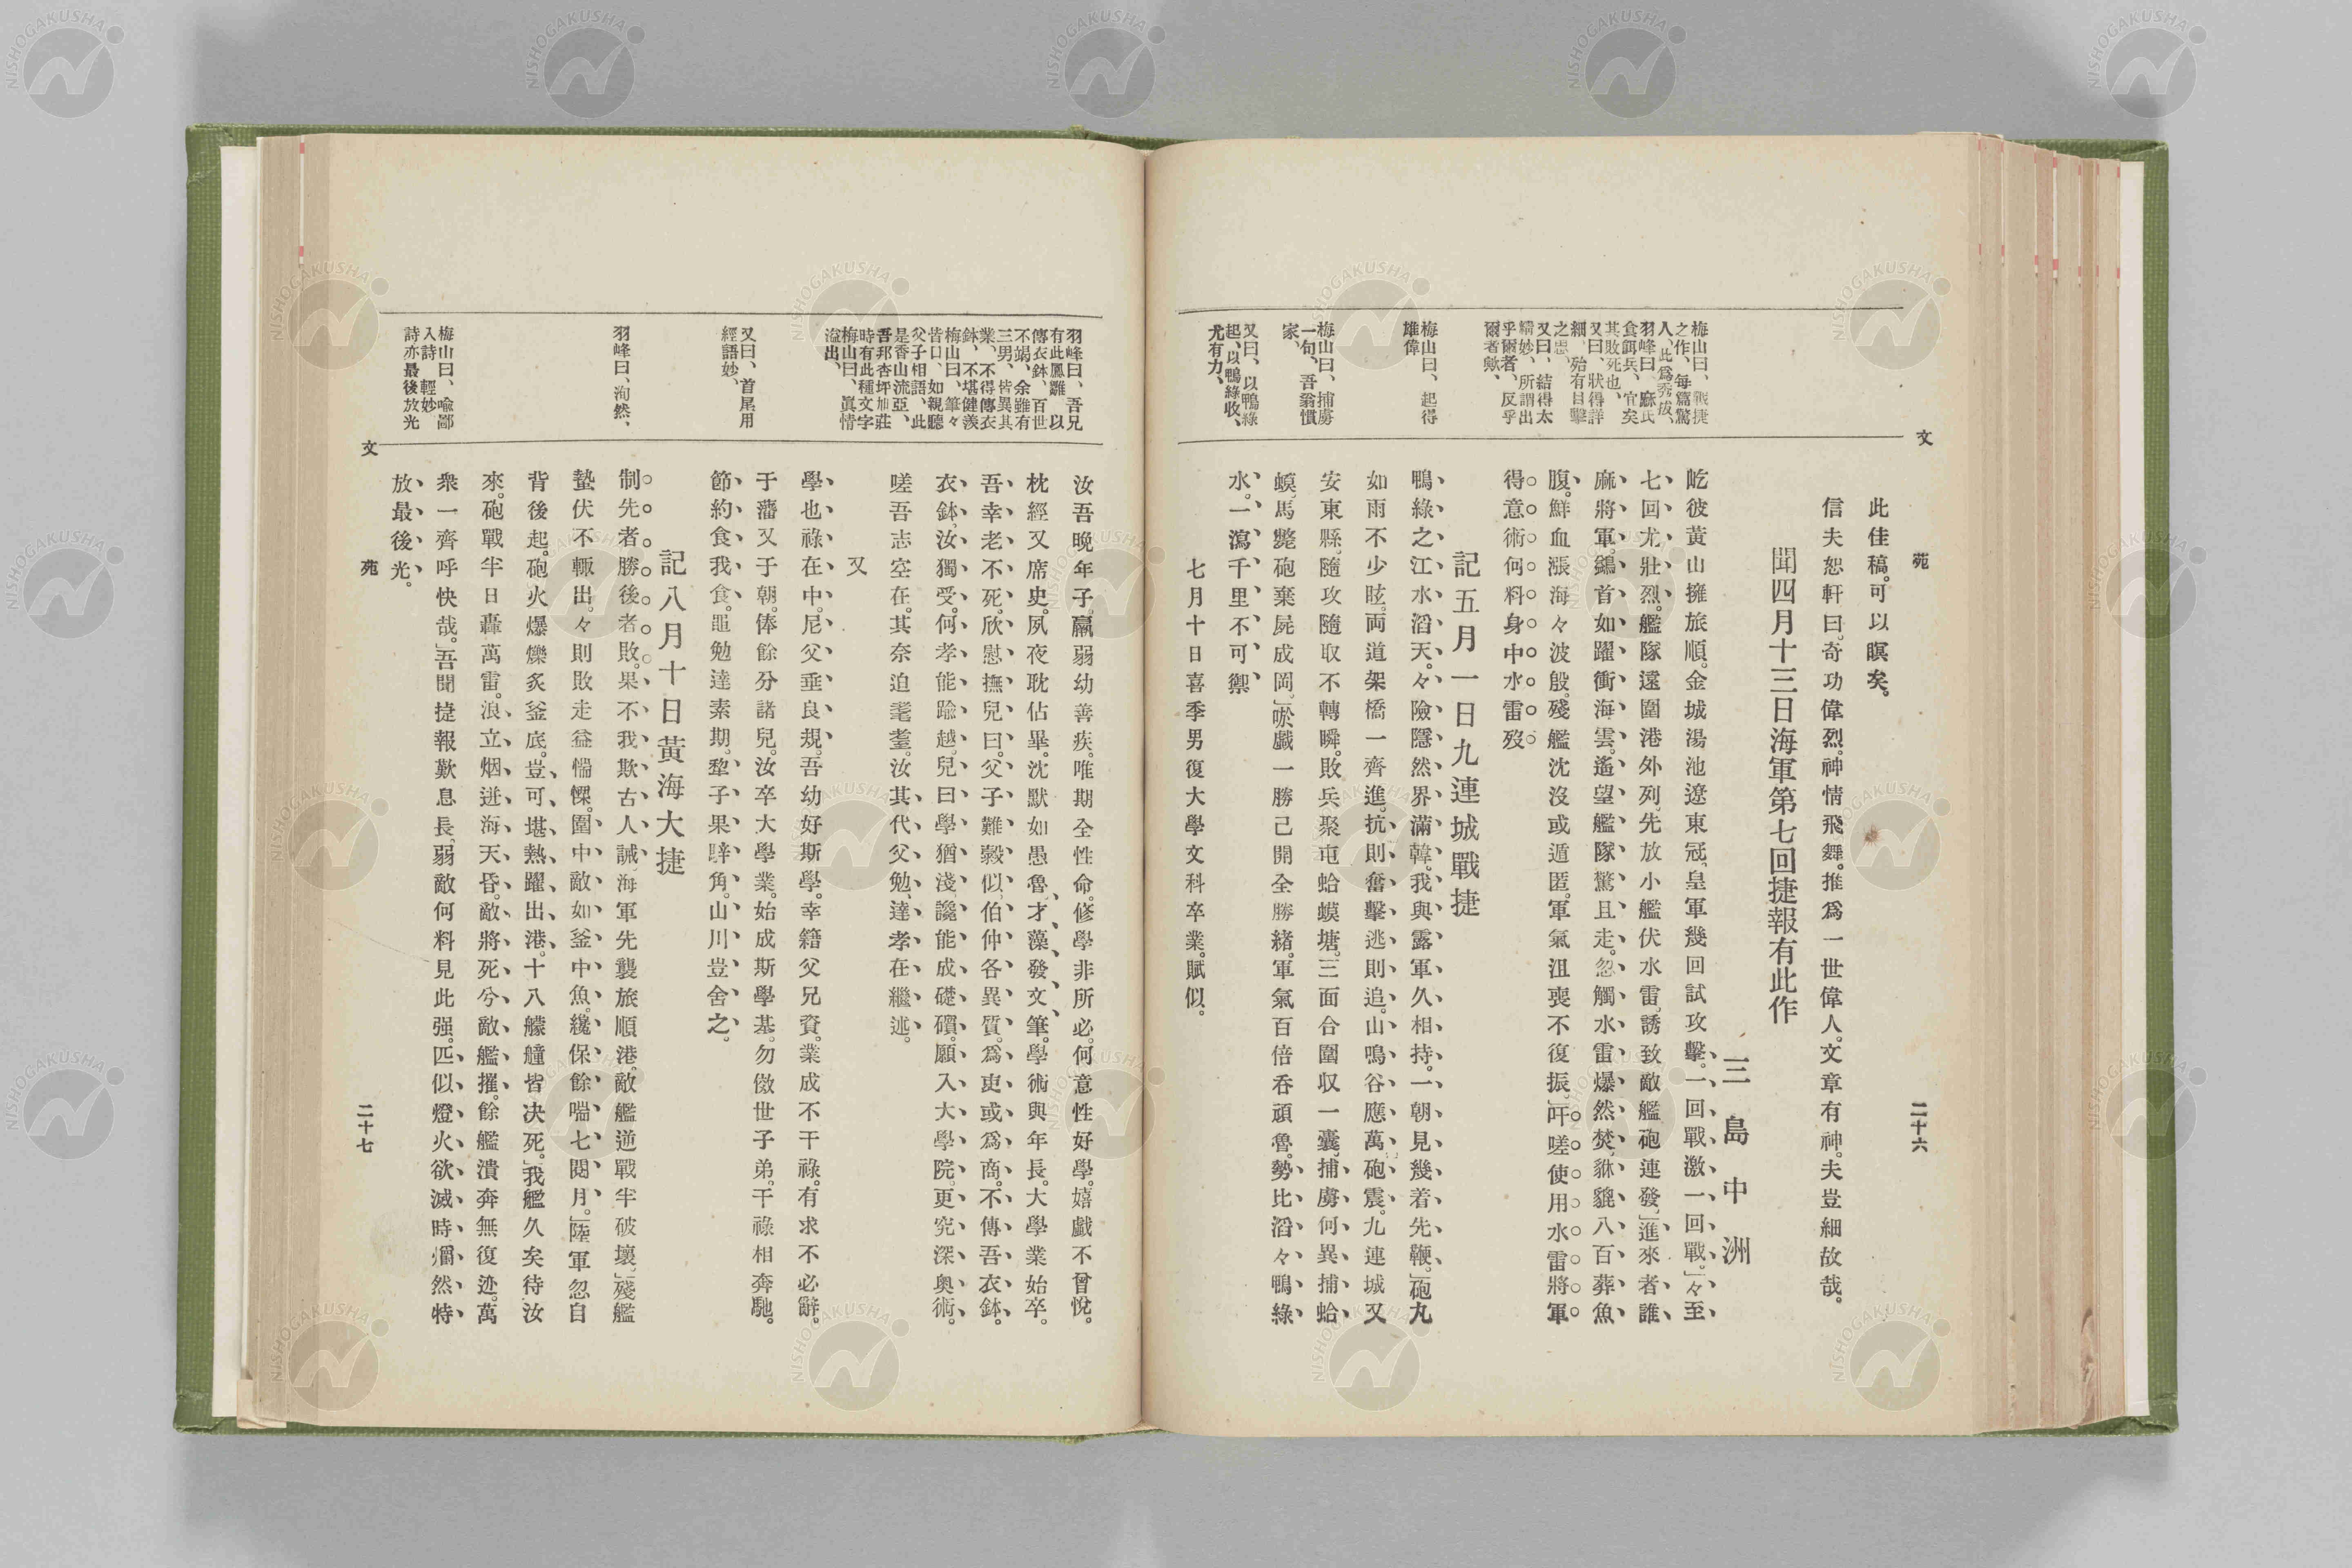 文
苑
二十六
此佳稿。可以瞑矣。
信夫恕軒曰。奇功偉烈。神情飛舞。推爲一世偉人。文章有神。夫豈細故哉。
聞四月十三日海軍第七回捷報有此作
三島中洲
屹彼黃山擁旅順。金城湯池遼東冠。皇軍幾回試攻擊。一回戰激一回戰。」々至
七回尤壯烈。艦隊遠圍港外列。先放小艦伏水雷。誘致敵艦砲連發。」進來者誰
麻將軍。鷁首如躍衝海雲。遙望艦隊驚且走。忽觸水雷爆然焚。貅貔八百葬魚
腹。鮮血漲海々波殷。殘艦沈沒或遁匿。軍氣沮喪不復振。」吁嗟使用水雷將軍
得意術。何料身中水雷歿。
梅山曰、戰捷
之作、每篇驚
人、此爲秀拔、
羽峰曰、麻氏
食餌兵、宜矣
其敗死也、
又曰、狀得詳
細、殆有目擊
之思、
又曰、結得太
精妙、所謂出
乎爾者、反乎
爾者歟、
記五月一日九連城戰捷
鴨綠之江水滔天。々險隱然界滿韓。我與露軍久相持。一朝見幾着先鞭。」砲丸
如雨不少眩。両道架橋一齊進。抗則奮擊逃則追。山鳴谷應萬砲震。九連城又
安東縣。隨攻隨取不轉瞬。敗兵聚屯蛤蟆塘。三面合圍収一囊。捕虜何異捕蛤
蟆。馬斃砲棄屍成岡。」吮戲一勝己開全勝緒。軍氣百倍吞頑魯。勢比滔々鴨綠
水。一瀉千里不可禦
梅山曰、起得
雄偉
梅山曰、捕虜
一句、吾翁慣
家、
又曰、以鴨綠
起、以鴨綠收、
尤有力、
七月十日喜季男復大學文科卒業。賦似。
汝吾晚年子。羸弱幼善疾。唯期全性命。修學非所必。何意性好學。嬉戲不曾悅。
枕經又席史。夙夜耽佔畢。沈默如愚魯。才藻發文筆。學術與年長。大學業始卒。
吾幸老不死。欣慰撫兒曰。父子難毅似。伯仲各異質。爲吏或爲商。不傳吾衣鉢。
衣鉢汝獨受。何孝能踰越。兒曰學猶淺。讒能成礎礩。願入大學院。更究深奧術。
嗟吾志空在。其奈迫耄耋。汝其代父勉。達孝在繼述。
羽峰曰、吾兄
有此鳳雛、以
傳衣鉢、百世
不竭、余雖有
三男、皆異其
業、不得傳衣
鉢、不堪健羨
梅山曰、筆々
皆口、如親聽
父子相語、此
是香山流亞、
吾邦杏坪旭莊
時有此種文字
梅山曰、眞情
溢出、
又
學也祿在中。尼父垂良規。吾幼好斯學。幸籍父兄資。業成不干祿。有求不必辭。
于藩又于朝。俸餘分諸兒。汝卒大學業。始成斯學基。勿傚世子弟。干祿相奔馳。
節約食我食。黽勉達素期。犂子果騂角。山川豈舍之。
又曰、首尾用
經語妙、
記八月十日黃海大捷
制先者勝後者敗。果不我欺古人誡。海軍先襲旅順港。敵艦逆戰半破壞。」殘艦
蟄伏不輙出。々則敗走益惴慄。圍中敵如釜中魚。纔保餘喘七閱月。」陸軍忽自
背後起。砲火爆爍炙釜底。豈可堪熱躍出港。十八艨艟皆决死。」我艦久矣待汝
來。砲戰半日轟萬雷。浪立烟迸海天昏。敵將死兮敵艦摧。餘艦潰奔無復迹。萬
衆一齊呼快哉。」吾聞捷報歎息長。弱敵何料見此强。匹似燈火欲滅時。爛然特
放最後光。
羽峰曰、洵然、
梅山曰、喩鄙
入詩、輕妙
詩亦最後放光
文
苑
二十七